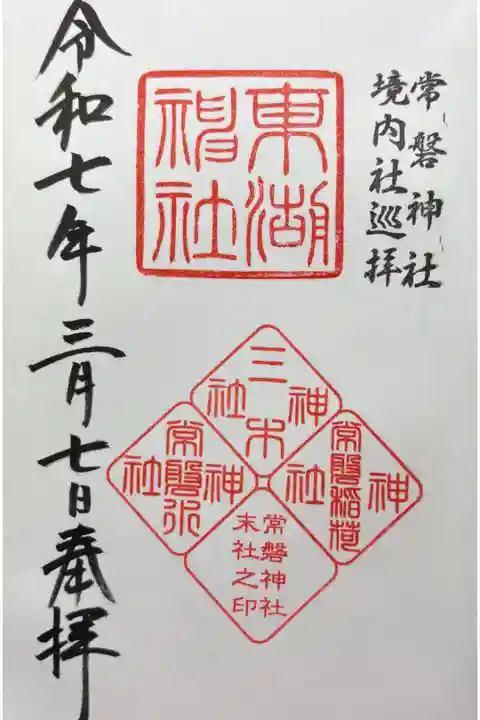 常磐神社
境内社巡拝
東湖
神社
三木
神社
常磐稲荷
神社
常磐水
神社
常磐神社
末社之印
令和七年三月七日奉拝